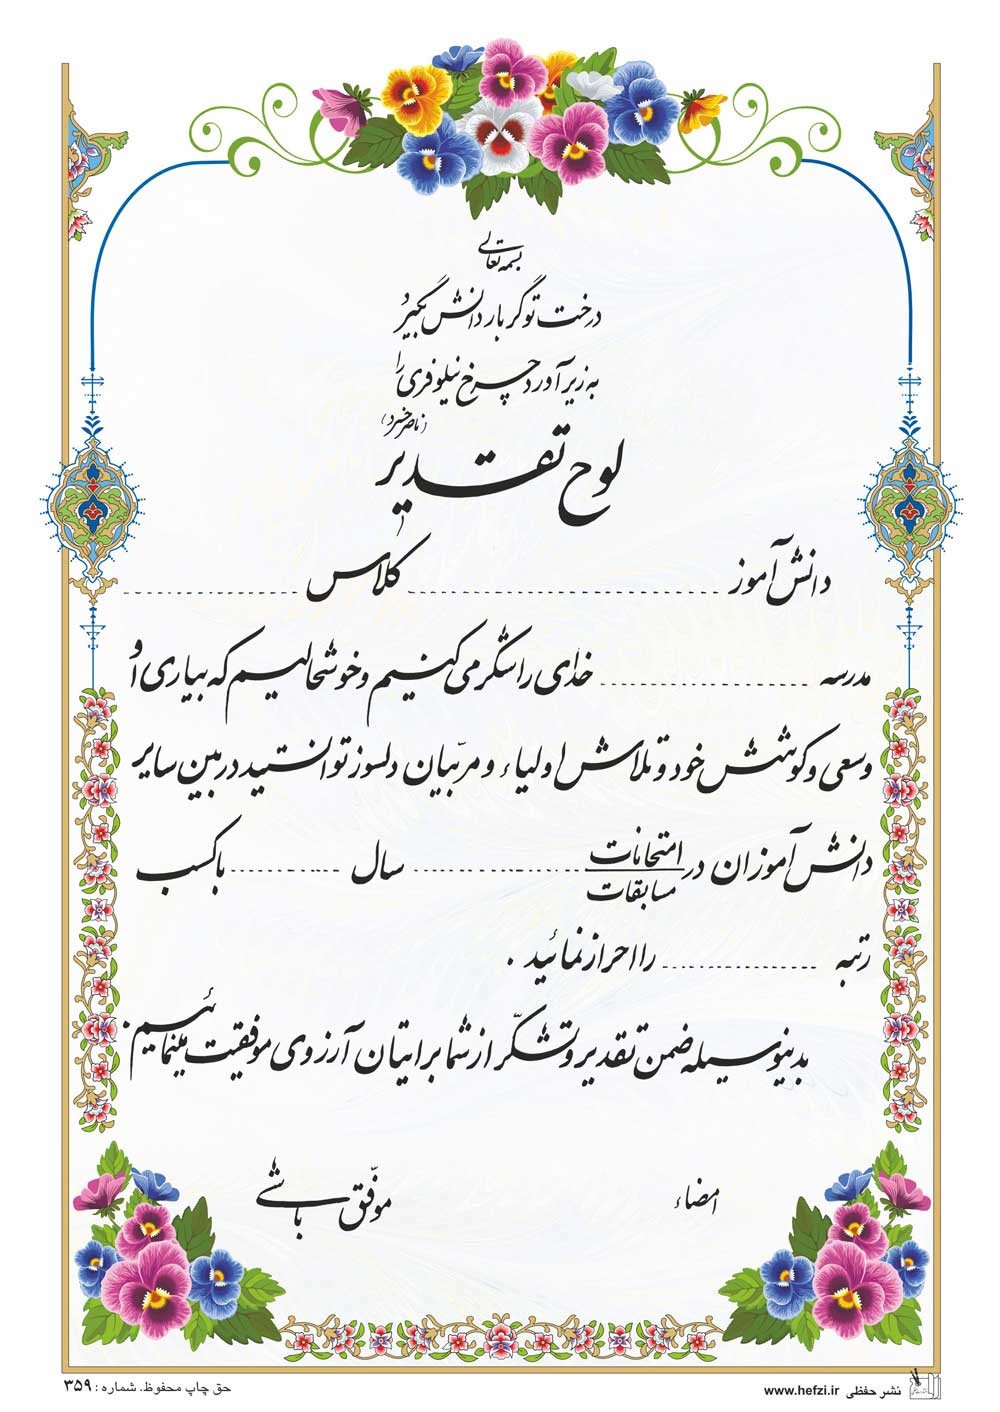 بسمه تعالی
درخت تو گر بار دانش بگیرد
به زیر آورد چرخ نیلوفری را
(ناصر خسرو)
لوح تقدیر
دانش آموز ........................ کلاس ........................
مدرسه ........................ خدای را شکر می کنیم و خوشحالیم که بیاری او
وسعی و کوشش خود و تلاش اولیاء و مربّیان دلسوز توانستید در بین سایر
دانش آموزان در امتحانات ........................ سال ............ با کسب
مسابقات
رتبه ........................ را احراز نمائید .
بدینوسیله ضمن تقدیر و تشکّر از شما برایتان آرزوی موفقیت مینمائیم.
امضاء
موفّق باشی
نشر حفظی www.hefzi.ir
حق چاپ محفوظ. شماره : ۳۵۹